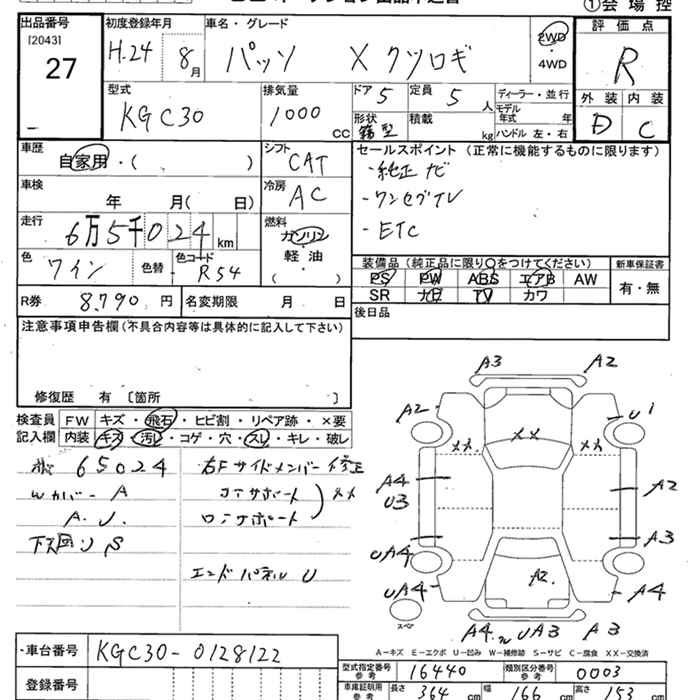 ①会場控
出品番号
[2043]
27
初度登録年月
H.24 8月
車名・グレード
パッソ X クツロギ
2WD
・
4WD
評価点
R
型式
KGC30
排気量
1000 cc
ドア 5
定員 5 人
形状 箱型
積載 kg
ディーラー・並行
モデル年式 年
ハンドル 左・右
外装 内装
D C
車歴
自家用・( )
シフト
CAT
車検
年 月( 日)
冷房
AC
セールスポイント (正常に機能するものに限ります)
・純正ナビ
・ワンセグTV
・ETC
走行
6万5千024 km
燃料
ガソリン
軽油
・
( )
色 ワイン
色替
色コード R54
装備品 (純正品に限り○をつけてください)
PS PW ABS エアB AW
SR ナビ TV カワ
新車保証書
有・無
R券 8,790 円
名変期限 月 日
後日品
注意事項申告欄(不具合内容等は具体的に記入して下さい)
修復歴 有 〔箇所 〕
検査員記入欄
FW キズ・飛石・ヒビ割・リペア跡・×要
内装 キズ・汚レ・コゲ・穴・スレ・キレ・破レ
65024
カバー A
A.U.
下回リ S
右Fサイドメンバー修正
コアサポート
ロアサポート
XX
エンドパネル U
A3 A2
A2 U1
XX XX XX
A4 U3
A2
A3
UA4
UA4
A2
A4
スペア
A4 UA3 A3
A-キズ E-エクボ U-凹み W-補修跡 S-サビ C-腐食 XX-交換済
車台番号 KGC30-0128122
登録番号
型式指定番号 参考 16440
類別区分番号 参考 0003
車庫証明用 参考
長さ 364 cm
幅 166 cm
高さ 153 cm